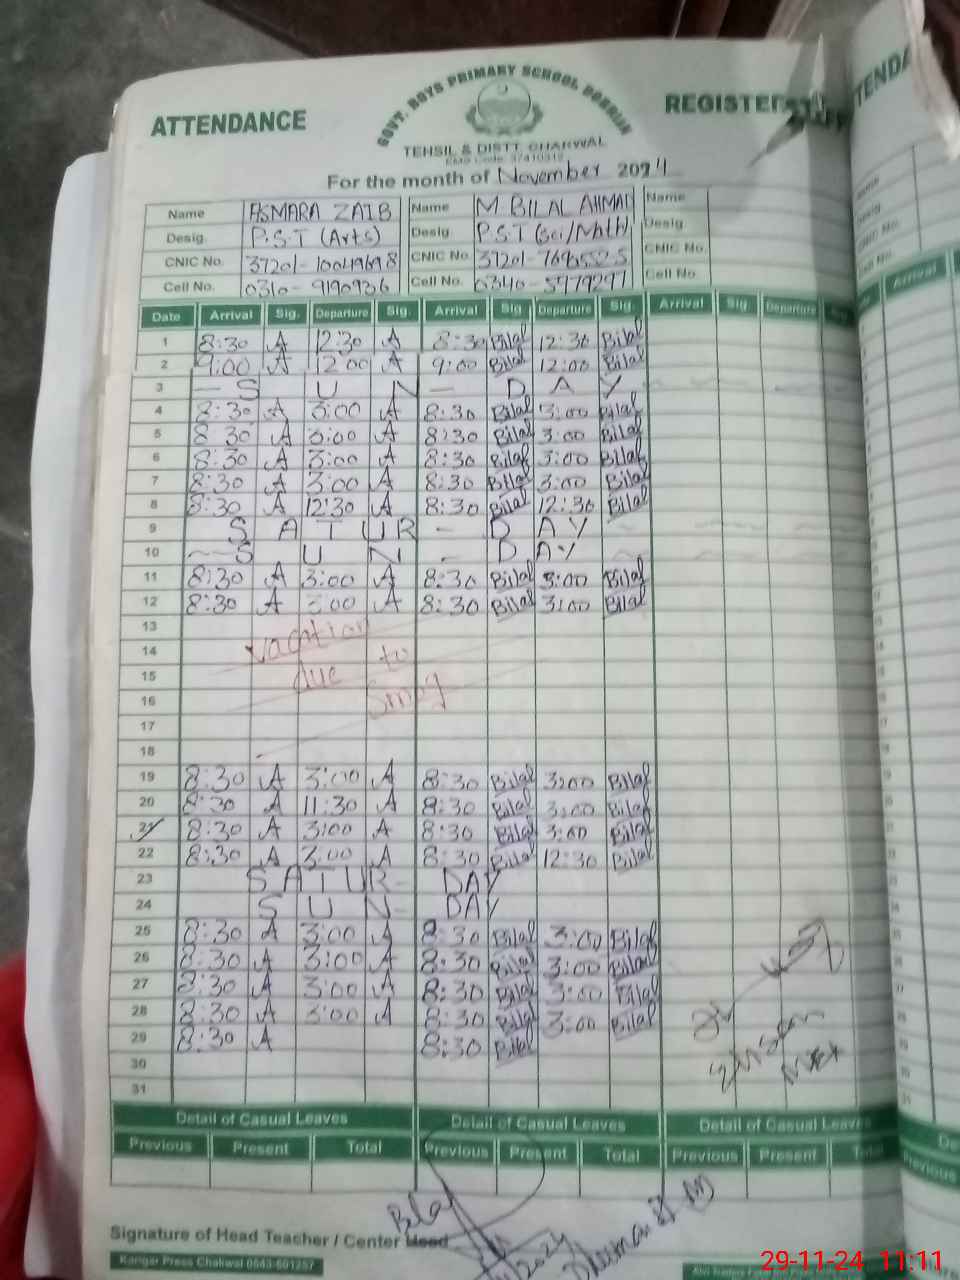 ATTENDANCE
GOVT. BOYS PRIMARY SCHOOL
REGISTER
TEHSIL & DISTT. CHAKWAL
For the month of November 2024
Name ASMARA ZAIB Name M BILAL AHMAD Name
Desig. P.S.T (Arts) Desig. P.S.T (Sci/Math) Desig.
CNIC No. CNIC No. CNIC No.
Cell No. Cell No. Cell No.
Date Arrival Sig. Departure Sig. Arrival Sig. Departure Sig. Arrival Sig. Departure
1 8:30 A 12:30 A 8:30 Bilal 12:30 Bilal
2 9:00 A 12:00 A 9:00 Bilal 12:00 Bilal
3 - S U N - D A Y
4 8:30 A 3:00 A 8:30 Bilal 3:00 Bilal
5 8 30 A 3:00 A 8:30 Bilal 3:00 Bilal
6 8:30 A 3:00 A 8:30 Bilal 3:00 Bilal
7 8:30 A 3:00 A 8:30 Bilal 3:00 Bilal
8 8:30 A 12:30 A 8:30 Bilal 12:30 Bilal
9 S A T U R - D A Y
10 S U N - D A Y
11 8:30 A 3:00 A 8:30 Bilal 3:00 Bilal
12 8:30 A 3:00 A 8:30 Bilal 3:00 Bilal
13
14 vacation
15 due to
16 Smog
17
18
19 8:30 A 3:00 A 8:30 Bilal 3:00 Bilal
20 8:30 A 11:30 A 8:30 Bilal 3:00 Bilal
21 8:30 A 3:00 A 8:30 Bilal 3:00 Bilal
22 8:30 A 3:00 A 8:30 Bilal 12:30 Bilal
23 S A T U R - DAY
24 S U N - DAY
25 8:30 A 3:00 A 8:30 Bilal 3:00 Bilal
26 8:30 A 3:00 A 8:30 Bilal 3:00 Bilal
27 8:30 A 3:00 A 8:30 Bilal 3:00 Bilal
28 8:30 A 3:00 A 8:30 Bilal 3:00 Bilal
29 8:30 A 8:30 Bilal
30
31
Detail of Casual Leaves Detail of Casual Leaves Detail of Casual Leaves
Previous Present Total Previous Present Total Previous Present
Bilal
Signature of Head Teacher / Center Head
Kangar Press Chakwal 0543-601257
29-11-24 11:11